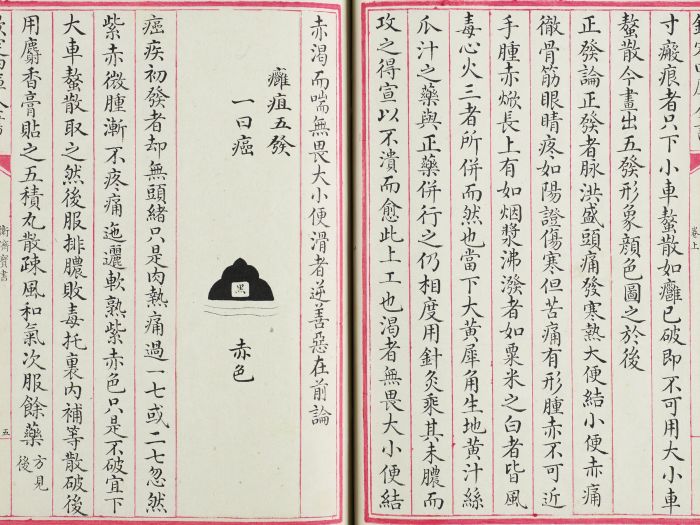 寸瘢痕者只下小車螯散如癰已破即不可用大小車
螯散今畫出五發形象顔色圖之於後
正發論正發者脉洪盛頭痛發寒熱大便結小便赤痛
徹骨筋眼睛疼如陽證傷寒但苦痛有形腫赤不可近
手腫赤焮長上有如烟漿沸潑者如粟米之白者皆風
毒心火三者所併而然也當下大黃犀角生地黃汁絲
瓜汁之藥與正藥併行之仍相度用針灸乘其未膿而
攻之得宣以不潰而愈此上工也渴者無畏大小便結
赤渴而喘無畏大小便滑者逆善惡在前論
癰疽五發
一曰癌
黑
赤色
癌疾初發者却無頭緒只是肉熱痛過一七或二七忽然
紫赤微腫漸不疼痛迤邐軟熟紫赤色只是不破宜下
大車螯散取之然後服排膿敗毒托裏內補等散破後
用麝香膏貼之五積丸散疎風和氣次服餘藥方見後
卷上
衛濟寶書
五